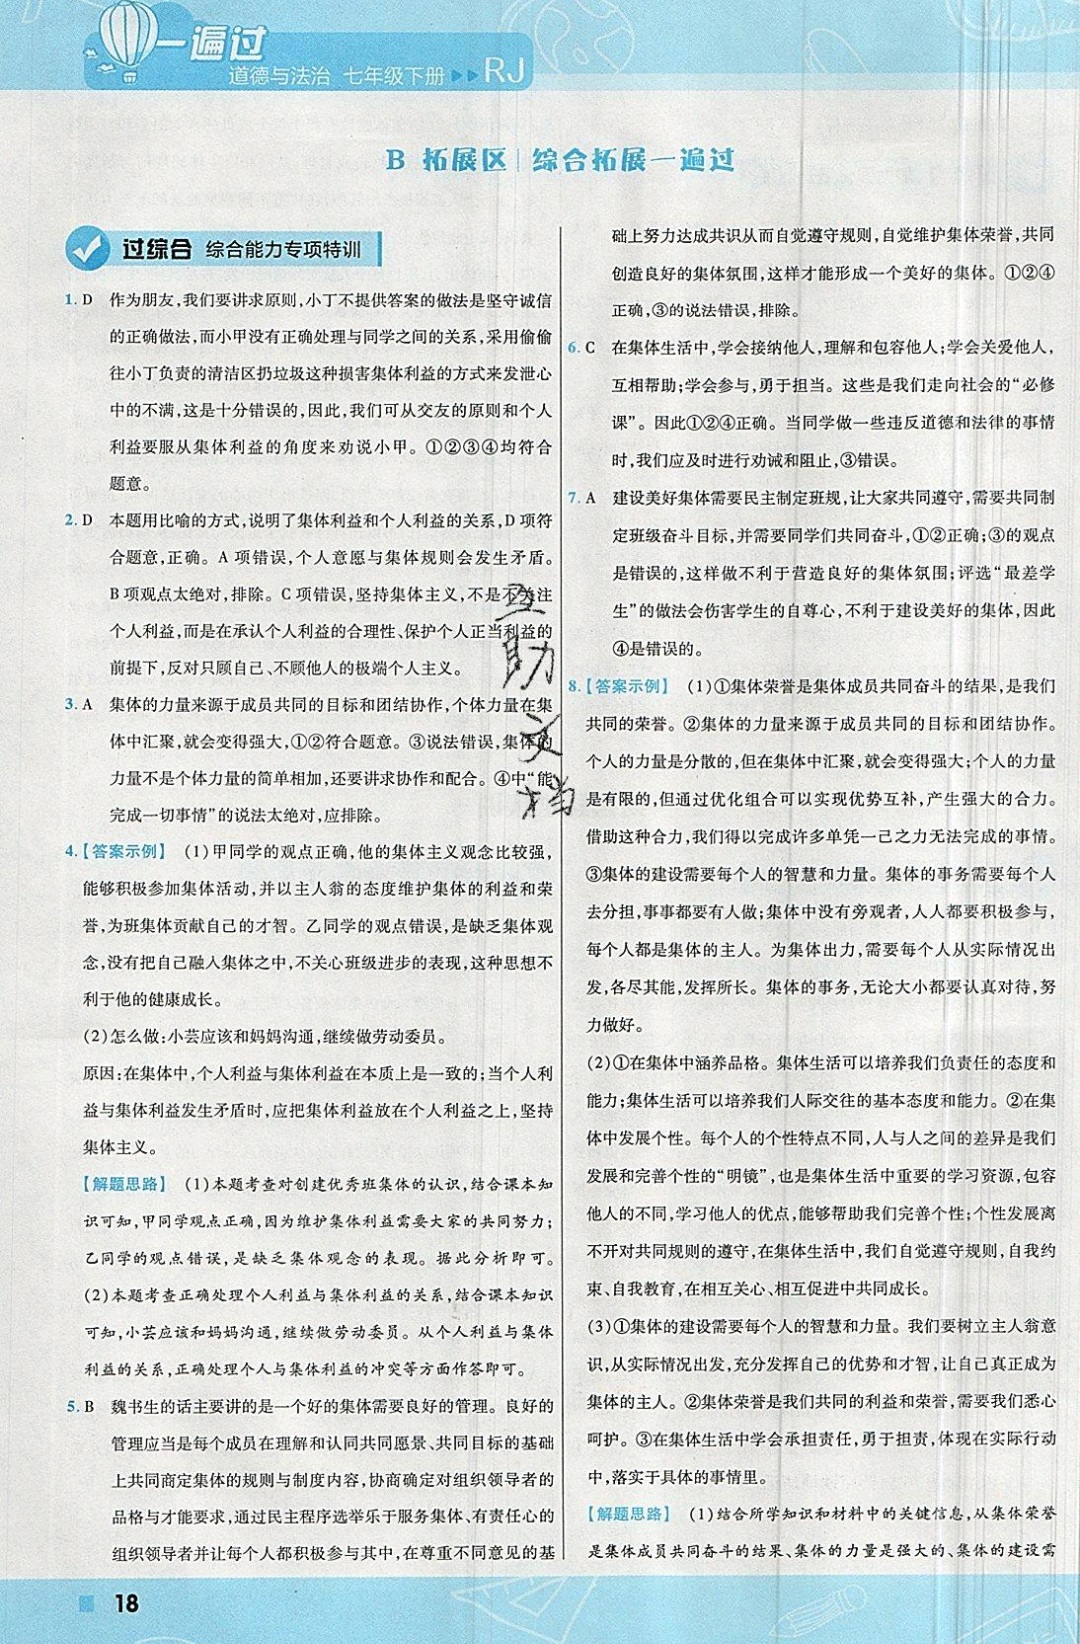 一遍过
道德与法治 七年级下册 RJ
B 拓展区 综合拓展一遍过
过综合 综合能力专项特训
1. D 作为朋友,我们要讲求原则,小丁不提供答案的做法是坚守诚信
的正确做法,而小甲没有正确处理与同学之间的关系,采用偷偷
往小丁负责的清洁区扔垃圾这种损害集体利益的方式来发泄心
中的不满,这是十分错误的,因此,我们可从交友的原则和个人
利益要服从集体利益的角度来劝说小甲。①②③④均符合
题意。
2. D 本题用比喻的方式,说明了集体利益和个人利益的关系,D项符
合题意,正确。A项错误,个人意愿与集体规则会发生矛盾。
B项观点太绝对,排除。C项错误,坚持集体主义,不是不关注
个人利益,而是在承认个人利益的合理性、保护个人正当利益的
前提下,反对只顾自己、不顾他人的极端个人主义。
3. A 集体的力量来源于成员共同的目标和团结协作,个体力量在集
体中汇聚,就会变得强大,①②符合题意。③说法错误,集体的
力量不是个体力量的简单相加,还要讲求协作和配合。④中“能
完成一切事情”的说法太绝对,应排除。
4.【答案示例】 (1)甲同学的观点正确,他的集体主义观念比较强,
能够积极参加集体活动,并以主人翁的态度维护集体的利益和荣
誉,为班集体贡献自己的才智。乙同学的观点错误,是缺乏集体观
念,没有把自己融入集体之中,不关心班级进步的表现,这种思想不
利于他的健康成长。
(2)怎么做:小芸应该和妈妈沟通,继续做劳动委员。
原因:在集体中,个人利益与集体利益在本质上是一致的;当个人利
益与集体利益发生矛盾时,应把集体利益放在个人利益之上,坚持
集体主义。
【解题思路】 (1)本题考查对创建优秀班集体的认识,结合课本知
识可知,甲同学观点正确,因为维护集体利益需要大家的共同努力;
乙同学的观点错误,是缺乏集体观念的表现。据此分析即可。
(2)本题考查正确处理个人利益与集体利益的关系,结合课本知识
可知,小芸应该和妈妈沟通,继续做劳动委员。从个人利益与集体
利益的关系,正确处理个人与集体利益的冲突等方面作答即可。
5. B 魏书生的话主要讲的是一个好的集体需要良好的管理。良好的
管理应当是每个成员在理解和认同共同愿景、共同目标的基础
上共同商定集体的规则与制度内容,协商确定对组织领导者的
品格与才能要求,通过民主程序选举乐于服务集体、有责任心的
组织领导者并让每个人都积极参与其中,在尊重不同意见的基
础上努力达成共识从而自觉遵守规则,自觉维护集体荣誉,共同
创造良好的集体氛围,这样才能形成一个美好的集体。①②④
正确,③的说法错误,排除。
6. C 在集体生活中,学会接纳他人,理解和包容他人;学会关爱他人,
互相帮助;学会参与,勇于担当。这些是我们走向社会的“必修
课”。因此①②④正确。当同学做一些违反道德和法律的事情
时,我们应及时进行劝诫和阻止,③错误。
7. A 建设美好集体需要民主制定班规,让大家共同遵守,需要共同制
定班级奋斗目标,并需要同学们共同奋斗,①②正确;③的观点
是错误的,这样做不利于营造良好的集体氛围;评选“最差学
生”的做法会伤害学生的自尊心,不利于建设美好的集体,因此
④是错误的。
8.【答案示例】 (1)①集体荣誉是集体成员共同奋斗的结果,是我们
共同的荣誉。②集体的力量来源于成员共同的目标和团结协作。
个人的力量是分散的,但在集体中汇聚,就会变得强大;个人的力量
是有限的,但通过优化组合可以实现优势互补,产生强大的合力。
借助这种合力,我们得以完成许多单凭一己之力无法完成的事情。
③集体的建设需要每个人的智慧和力量。集体的事务需要每个人
去分担,事事都要有人做;集体中没有旁观者,人人都要积极参与,
每个人都是集体的主人。为集体出力,需要每个人从实际情况出
发,各尽其能,发挥所长。集体的事务,无论大小都要认真对待,努
力做好。
(2)①在集体中涵养品格。集体生活可以培养我们负责任的态度和
能力;集体生活可以培养我们人际交往的基本态度和能力。②在集
体中发展个性。每个人的个性特点不同,人与人之间的差异是我们
发展和完善个性的“明镜”,也是集体生活中重要的学习资源,包容
他人的不同,学习他人的优点,能够帮助我们完善个性;个性发展离
不开对共同规则的遵守,在集体生活中,我们自觉遵守规则,自我约
束、自我教育,在相互关心、相互促进中共同成长。
(3)①集体的建设需要每个人的智慧和力量。我们要树立主人翁意
识,从实际情况出发,充分发挥自己的优势和才智,让自己真正成为
集体的主人。②集体荣誉是我们共同的利益和荣誉,需要我们悉心
呵护。③在集体生活中学会承担责任,勇于担责,体现在实际行动
中,落实于具体的事情里。
【解题思路】 (1)结合所学知识和材料中的关键信息,从集体荣誉
是集体成员共同奋斗的结果、集体的力量是强大的、集体的建设需
互助文档
18